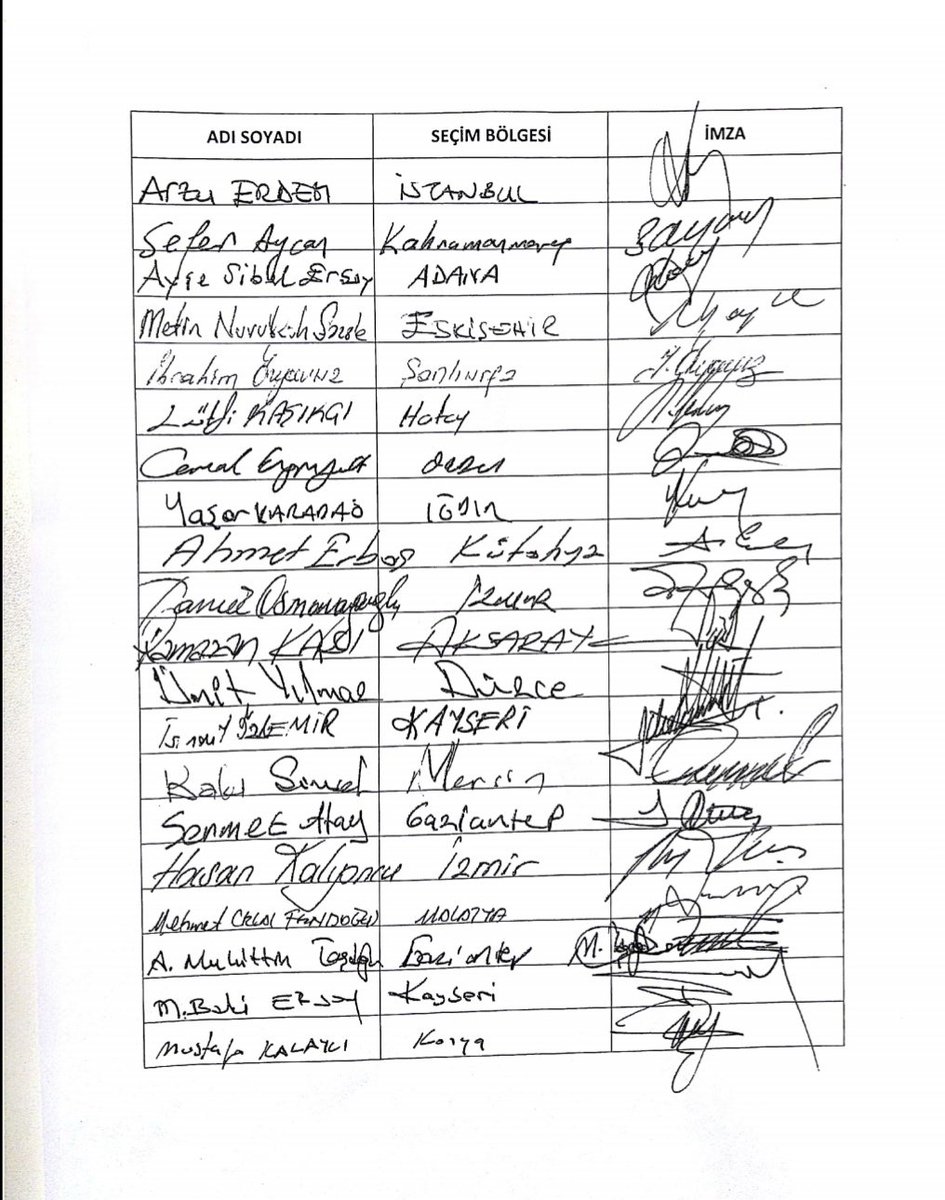 ADI SOYADI SEÇİM BÖLGESİ İMZA
Arzu ERDEM İSTANBUL
Sefer Aycan Kahramanmaraş
Ayşe Sibel Ersoy ADANA
Metin Nurullah Sazak ESKİŞEHİR
İbrahim Özyavuz Şanlıurfa
Lütfi KAŞIKÇI Hatay
Cemal Enginyurt ORDU
Yaşar KARADAĞ IĞDIR
Ahmet Erbaş Kütahya
Tamer Osmanağaoğlu İZMİR
Ramazan KAŞLI AKSARAY
Ümit Yılmaz Düzce
İsmail ÖZDEMİR KAYSERİ
Baki Şimşek Mersin
Sermet Atay Gaziantep
Hasan Kalyoncu İzmir
Mehmet CELAL FENDOĞLU MALATYA
A. Muhittin Taşdoğan Gaziantep
M. Baki ERSOY Kayseri
Mustafa KALAYCI Konya